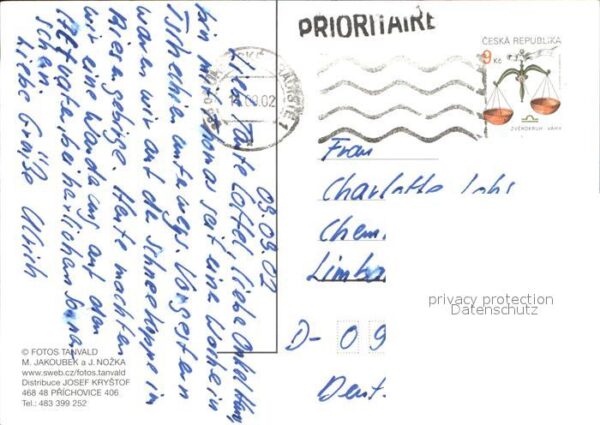 PRIORITAIRE
ČESKÁ REPUBLIKA
9 Kč
ZVĚROKRUH - VÁHY
09.02
09.09.02
Liebe Tante Lottel, liebe Onkel Hans,
bin mit Thomas seit eine Woche in
Tschechien unterwegs. Vorgestern
waren wir auf der Schneekoppe im
Riesengebirge. Heute machten
wir eine Wanderung auf den
bei herrlichem Sonnen
schein.
Liebe Grüße Ulrich
Frau
Charlotte
Chem.
Limba
D- 09
Deut.
privacy protection
Datenschutz
© FOTOS TANVALD
M. JAKOUBEK a J. NOŽKA
www.sweb.cz/fotos.tanvald
Distribuce JOSEF KRYŠTOF
468 48 PŘÍCHOVICE 406
Tel.: 483 399 252